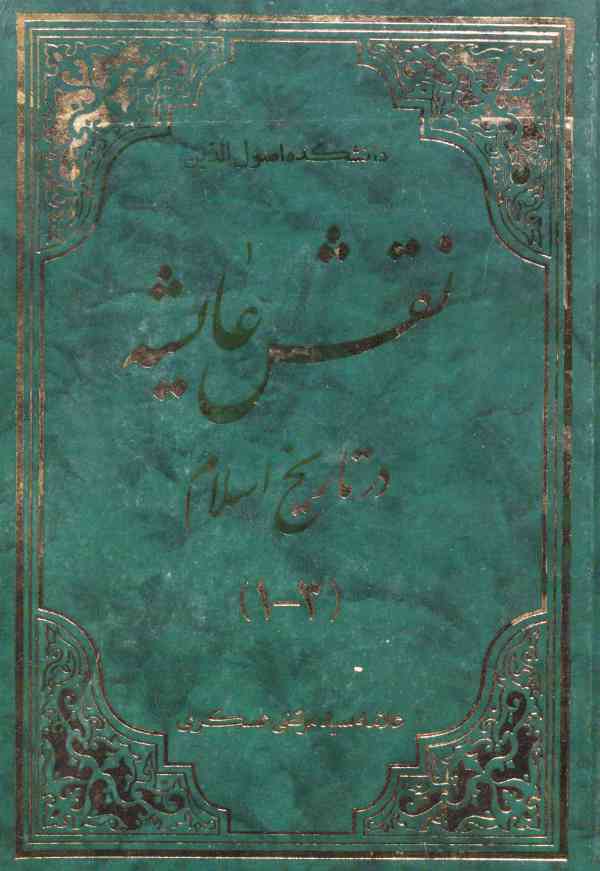 دانشکده اصول الدین
نقش عایشه
در تاریخ اسلام
(۱-۳)
علامه سید مرتضی عسکری